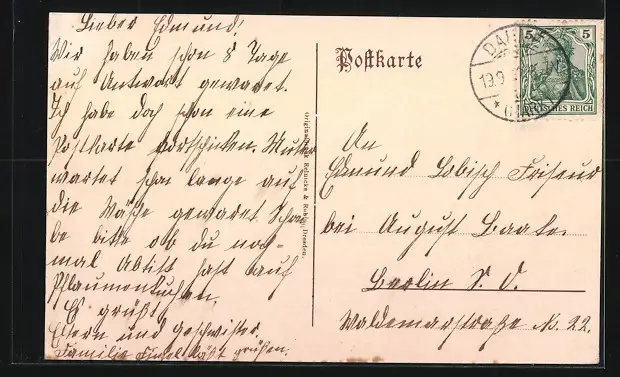 Lieber Edmund!
Wir haben schon 8 Tage
auf Antwort gewaret.
Ich habe doch schon eine
Postkarte vortschicken. Mutter
wartet schon lange auf
die Wäsche gewaret Schrei
be bitte ob du noch
mal Abitit hast auf
Pflaumenkuchen.
Es grüßt
Eltern und geschwister.
Familie läßt grüßen.
Originaldruck Reinicke & Rubin, Dresden.
Postkarte
5 5
DEUTSCHES REICH
19.9
An
Edmund Lobisch Friseur
bei August Baate.
Berlin S. O.
Waldemarstraße N. 22.